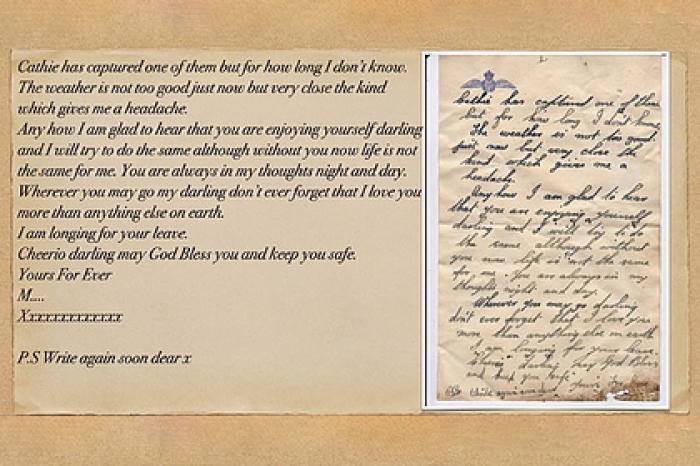 Cathie has captured one of them but for how long I don't know.
The weather is not too good just now but very close the kind
which gives me a headache.
Any how I am glad to hear that you are enjoying yourself darling
and I will try to do the same although without you now life is not
the same for me. You are always in my thoughts night and day.
Wherever you may go my darling don't ever forget that I love you
more than anything else on earth.
I am longing for your leave.
Cheerio darling may God Bless you and keep you safe.
Yours For Ever
M....
Xxxxxxxxxxxxx
P.S Write again soon dear x
Cathie has captured one of them
but for how long I don't know.
The weather is not too good
just now but very close the
kind which gives me a
headache.
Any how I am glad to hear
that you are enjoying yourself
darling and I will try to do
the same although without
you now life is not the same
for me. You are always in my
thoughts night and day.
Wherever you may go darling
don't ever forget that I love you
more than anything else on earth
I am longing for your leave.
Cheerio darling may God Bless
and keep you safe. Yours For Ever